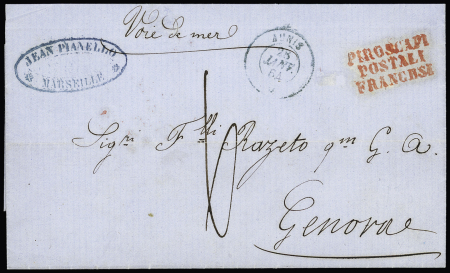 Voie de mer
JEAN PIANELLO
MARSEILLE
TUNIS
25
JANV.
64
PIROSCAFI
POSTALI
FRANCESI
Sigri Flli Razeto qm G. A.
10
Genova